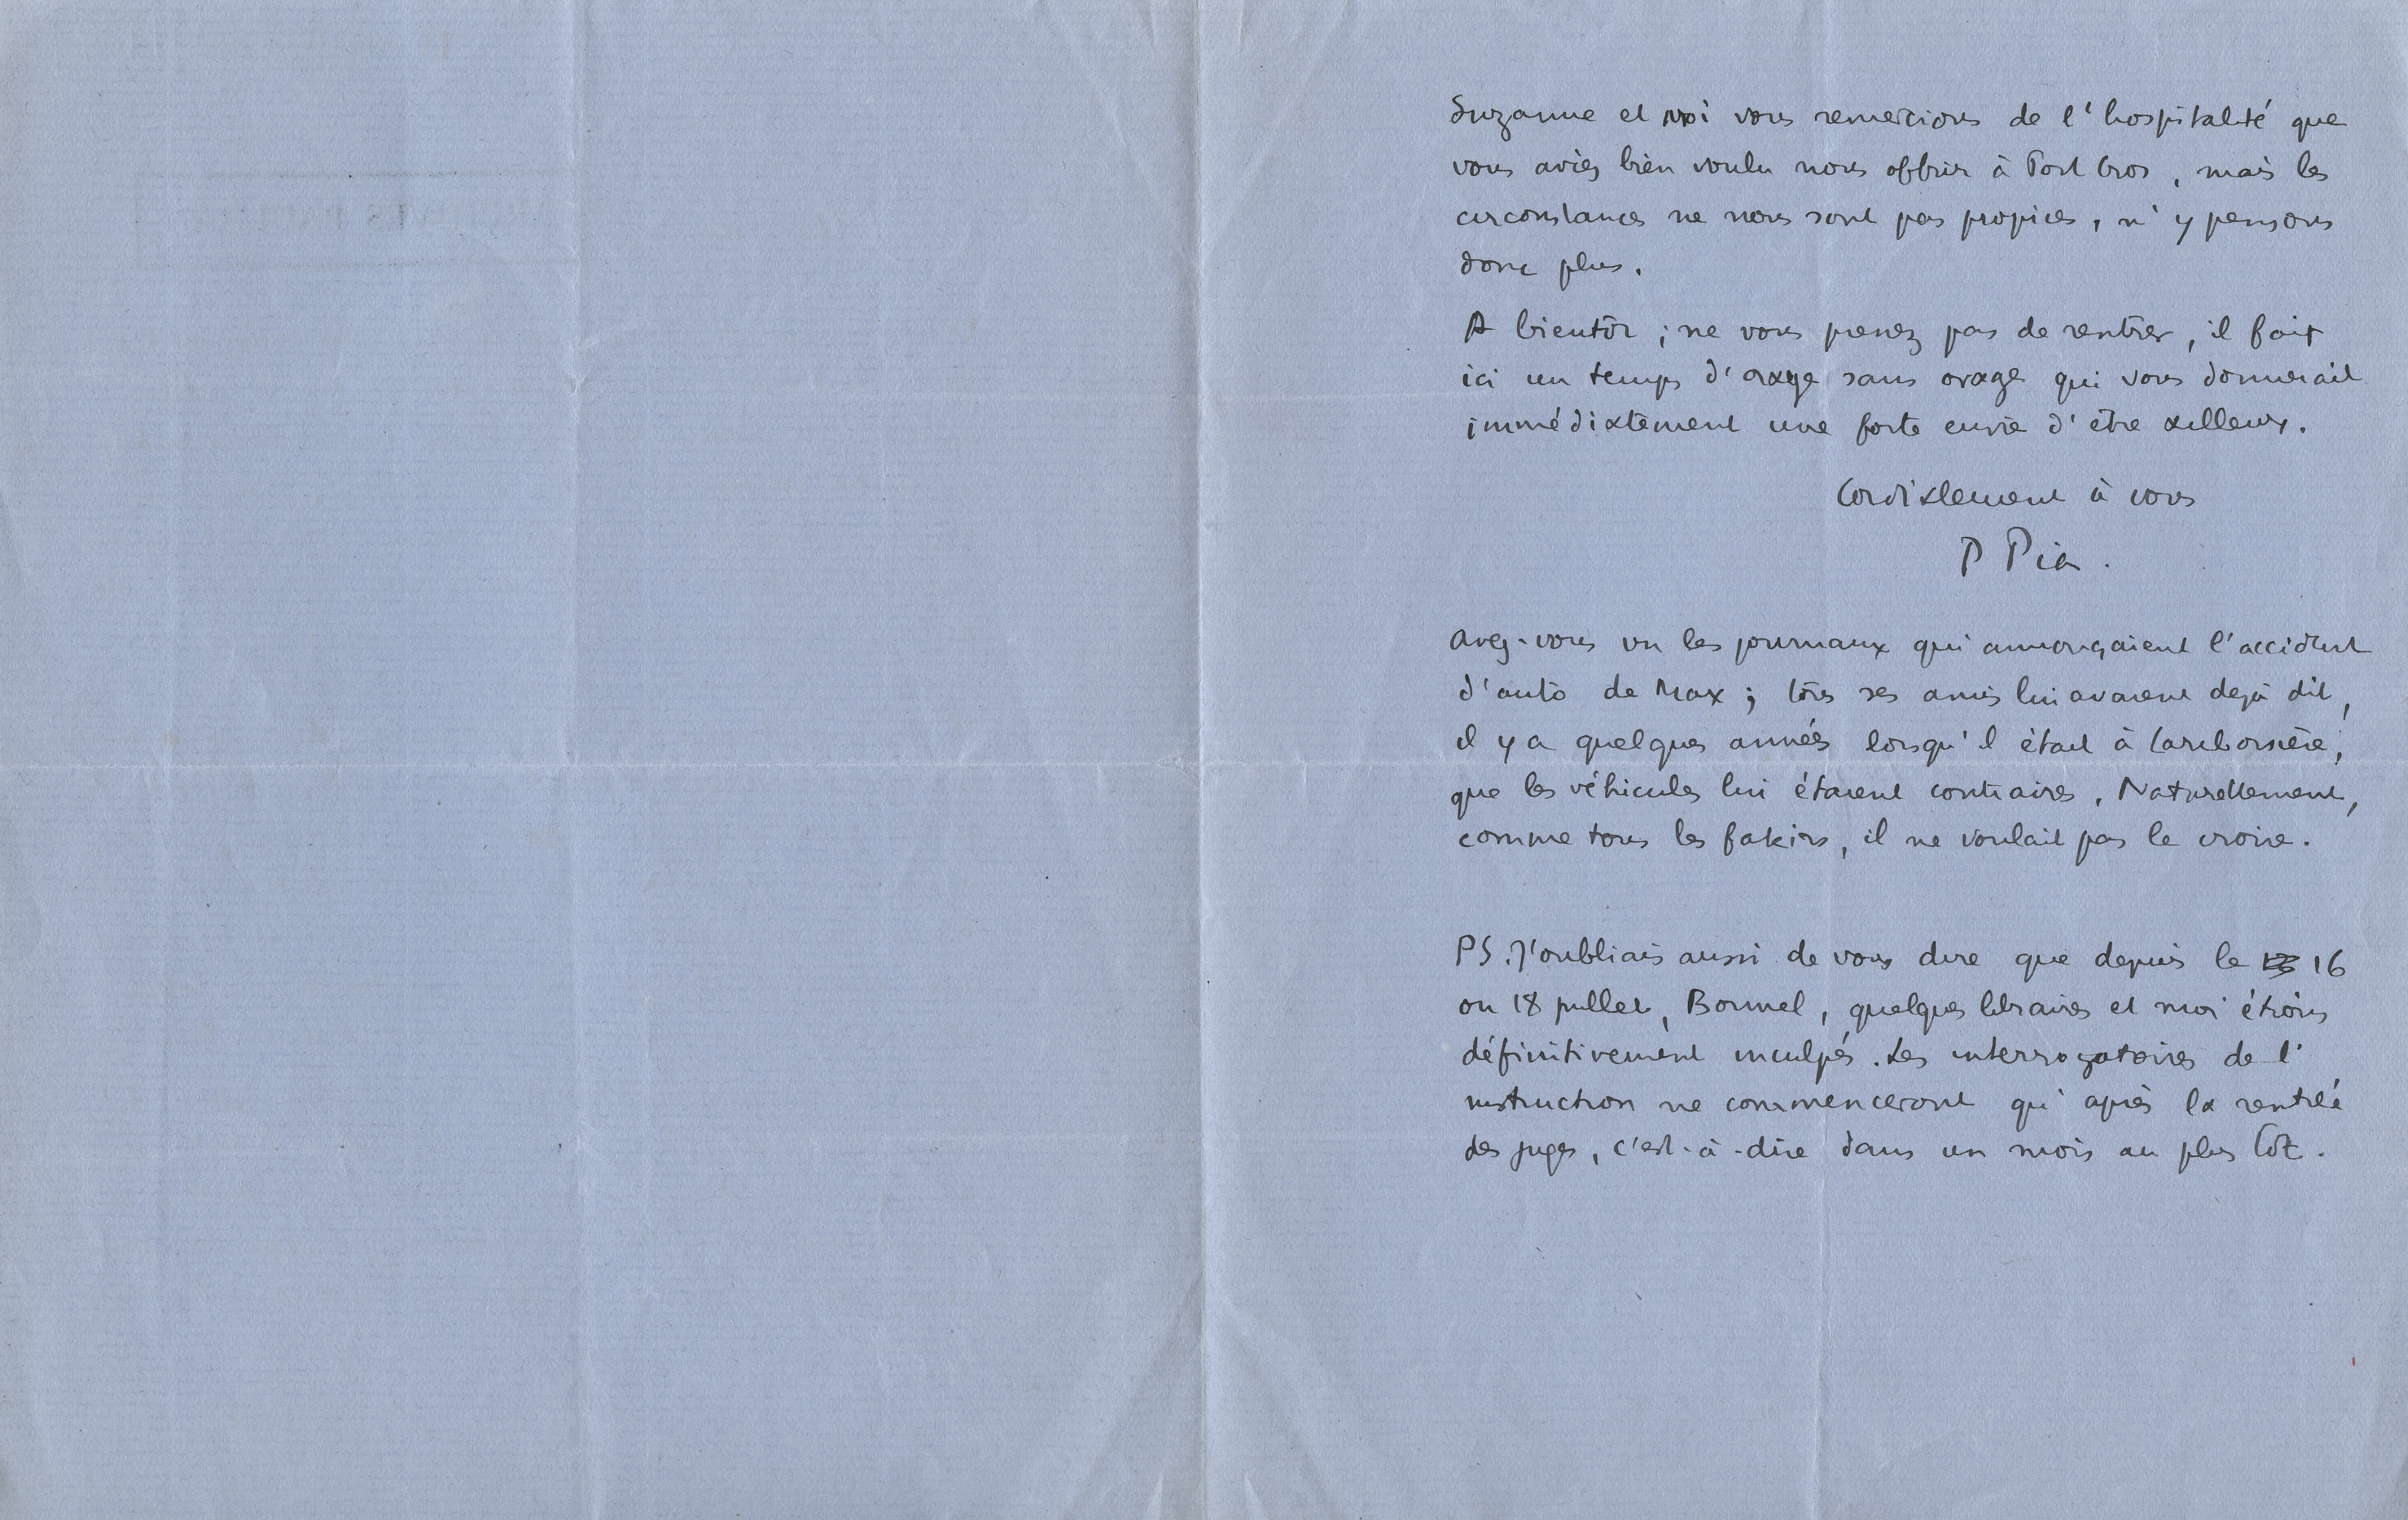 Suzanne et moi vous remercions de l'hospitalité que
vous aviez bien voulu nous offrir à Port Cros, mais les
circonstances ne nous sont pas propices, n'y pensons
donc plus.
A bientôt ; ne vous pressez pas de rentrer, il fait
ici un temps d'orage sans orage qui vous donnerait
immédiatement une forte envie d'être ailleurs.
Cordialement à vous
P Pia.
Avez-vous vu les journaux qui annonçaient l'accident
d'auto de Max ; tous ses amis lui avaient dejà dit,
il y a quelques années lorsqu'il était à
que les véhicules lui étaient contraires. Naturellement,
comme tous les fakirs, il ne voulait pas le croire.
PS. J'oubliais aussi de vous dire que depuis le 16
ou 18 juillet, Bonnel, quelques libraires et moi étions
définitivement inculpés. Les interrogatoires de l'
instruction ne commenceront qu'après la rentrée
des juges, c'est-à-dire dans un mois au plus tôt.